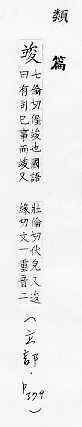 類篇
竣
七倫切偓竣也國語
曰有司已事而竣又
壯倫切伏皃又逡
緣切文一重音二
(立部·P379)